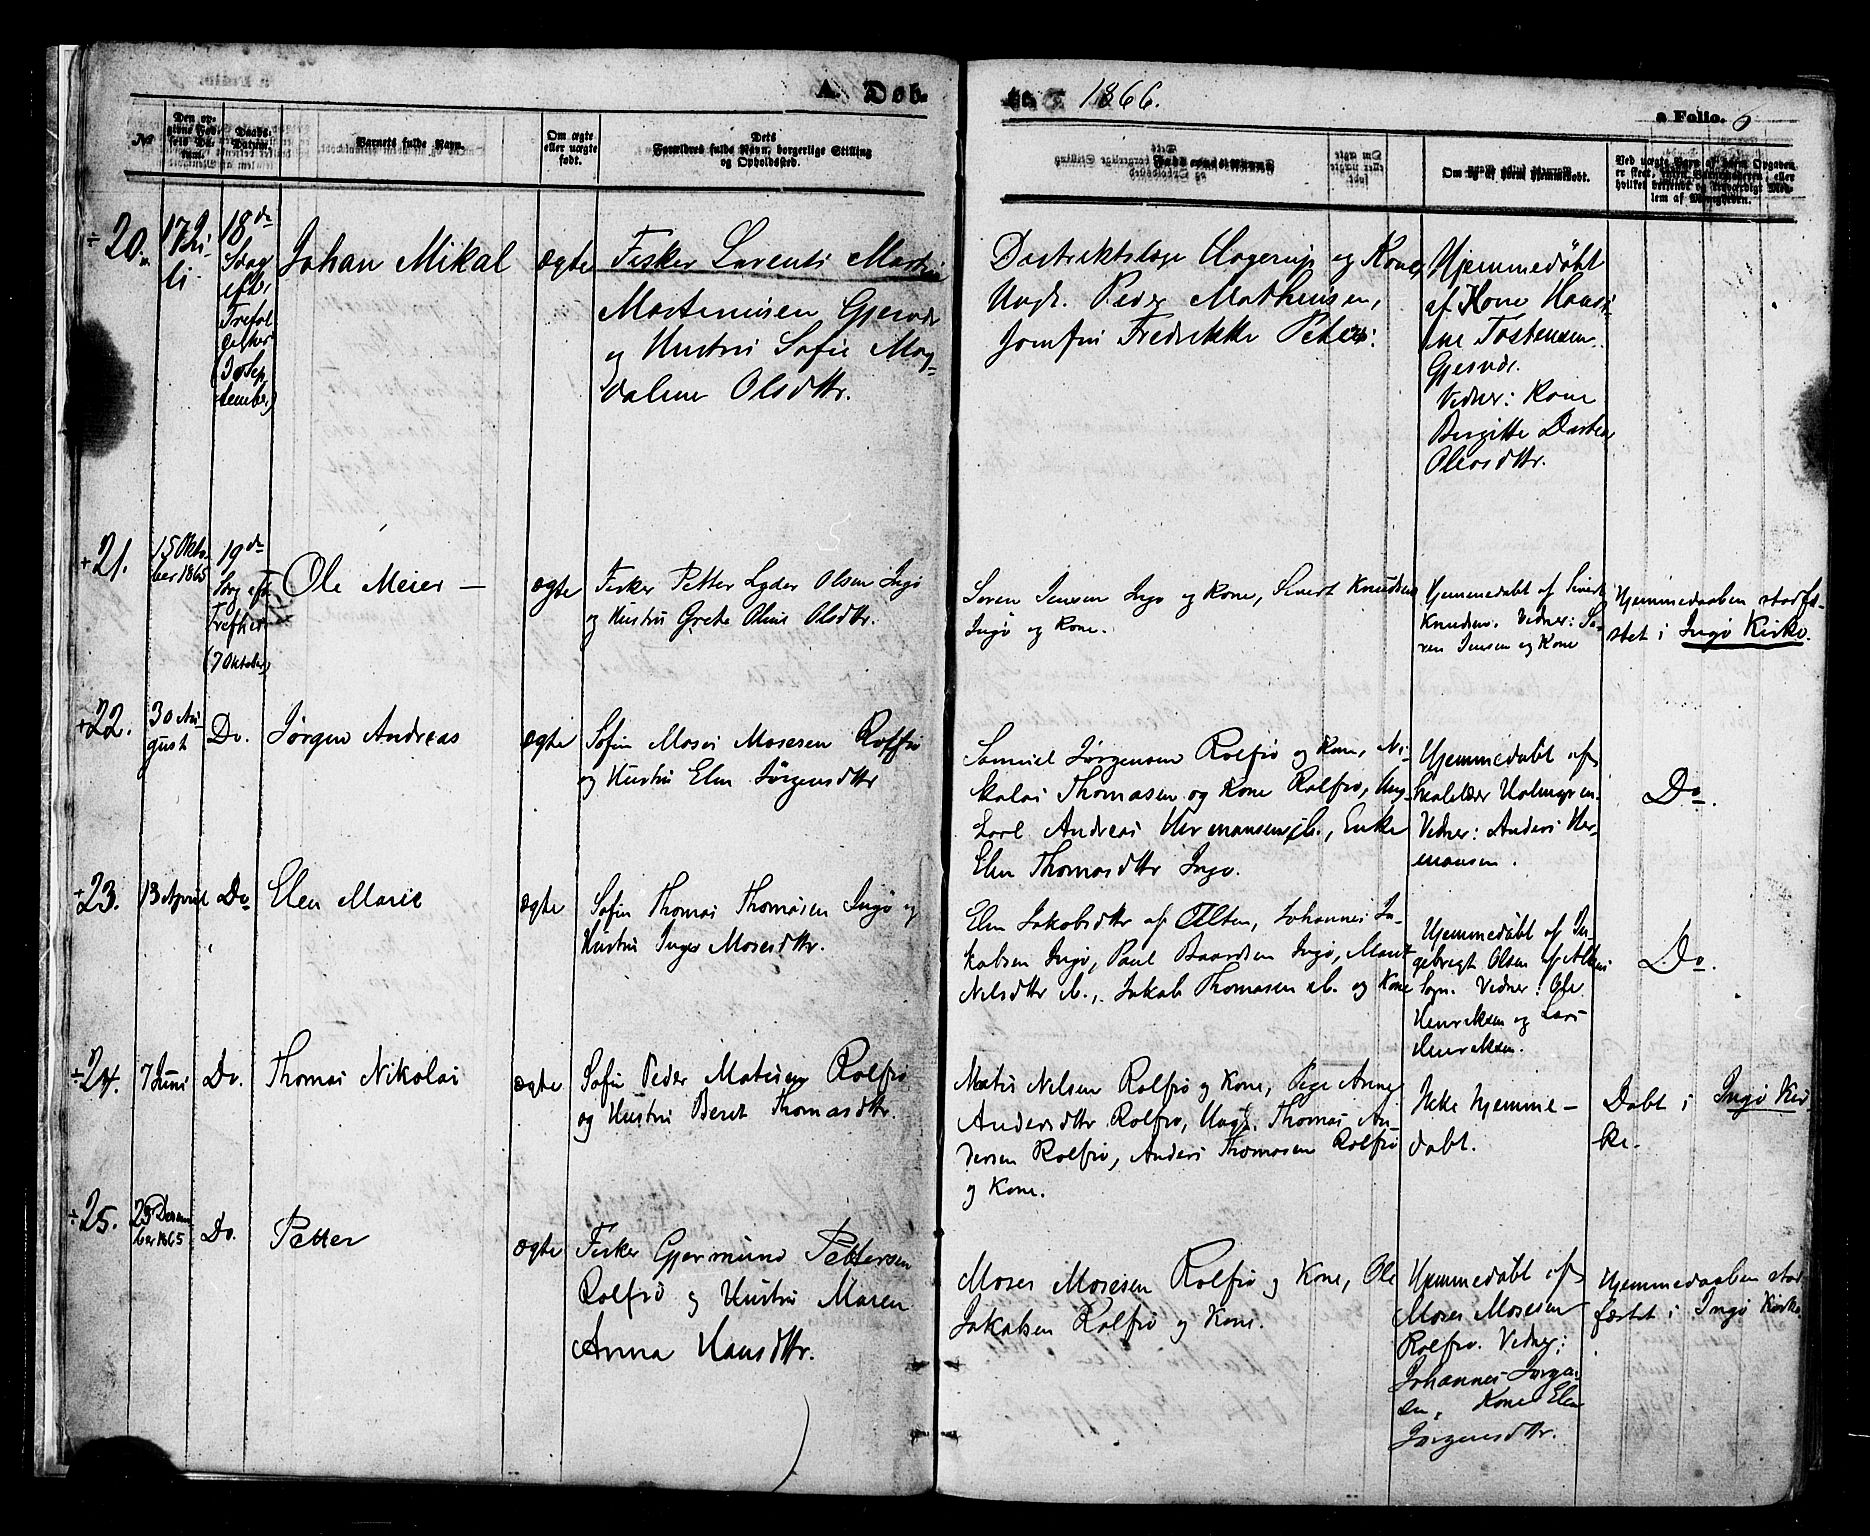 A. Døb-
te 1866.
a Folio. 6
No
Den op-
givne Fød-
sels Da-
tum.
Daabs-
Datum.
Barnets fulde Navn.
Om ægte
eller uægte
født.
Dets
Forældres fulde Navn, borgerlige Stilling
og Opholdssted.
Om og af hvem hjemmedøbt.
20.
17 Ju-
li
18de
Sdag
efter
(30 Sep-
tember)
Johan Mikal
ægte
Fisker Lorents Martin
Martinusen Gjesvær
og Hustru Sofie Mag-
dalene Olsdttr.
Distriktslæge Hagerup og Kone,
Ungk. Peder Mathiusen,
Jomfru Fredrikke Peters:
Hjemmedøbt
af Kone Hansi-
ne Tostensen
Gjesvær.
Vidner: Kone
Birgitte
Olavsdttr.
21.
15 Okto-
ber 1865
19de
Sdag eft.
Trefher
(7 Oktober)
Ole Meier —
ægte
Fisker Petter Lyder Olsen Ingø
og Hustru Grete Oline Olsdttr.
Søren Jensen Ingø og Kone, Sivert Knudsen
Ingø og Kone.
Hjemmedøbt af Sivert
Knudsen. Vidner: Sø-
ren Jensen og Kone
Hjemmedaaben stadfæ-
stet i Ingø Kirke.
22.
30 Au-
gust
Do.
Jørgen Andreas
ægte
Søfin Moses Mosesen Rolfsø
og Hustru Elen Jørgensdttr
Samuel Jørgensen Rolfsø og Kone, Ni-
kolai Thomasen og Kone Rolfsø, Ung-
karl Andreas Hermansen ib., Enke
Elen Thomasdttr Ingø.
Hjemmedøbt af
Skolelær Holmgren.
Vidner: Anders Her-
mansen.
Do.
23.
13 April
Do
Elen Marie
ægte
Søfin Thomas Thomasen Ingø og
Hustru Inger Mosesdttr.
Elen Jakobsdttr af Alten, Johannes Ja-
kobsen Ingø, Paul Baardsen Ingø, Marit
Nilsdttr ib., Jakob Thomasen ib. og Kone
Hjemmedøbt af In-
gebrigt Olsen af Altens
Sogn. Vidner: Ole
Henriksen og Lars
Henriksen.
Do.
24.
7 Juni
Do.
Thomas Nikolai
ægte
Søfin Peder Matisen Rolfsø
og Hustru Beret Thomasdttr.
Matis Nilsen Rolfsø og Kone, Pige Anne
Andersdttr Rolfsø, Ungk. Thomas An-
dersen Rolfsø, Anders Thomasen Rolfsø
og Kone.
Ikke hjemme-
døbt.
Døbt i Ingø Kir-
ke.
25.
25 Decem-
ber 1865
Do.
Petter
ægte
Fisker Gjermund Pettersen
Rolfsø og Hustru Maren
Anna Hansdttr.
Moses Mosesen Rolfsø og Kone, Ole
Jakobsen Rolfsø og Kone.
Hjemmedøbt af
Moses Mosesen
Rolfsø. Vidner:
Johannes Jørgen-
sen, Kone Elen
Jørgensdttr.
Hjemmedaaben stad-
fæstet i Ingø Kirke